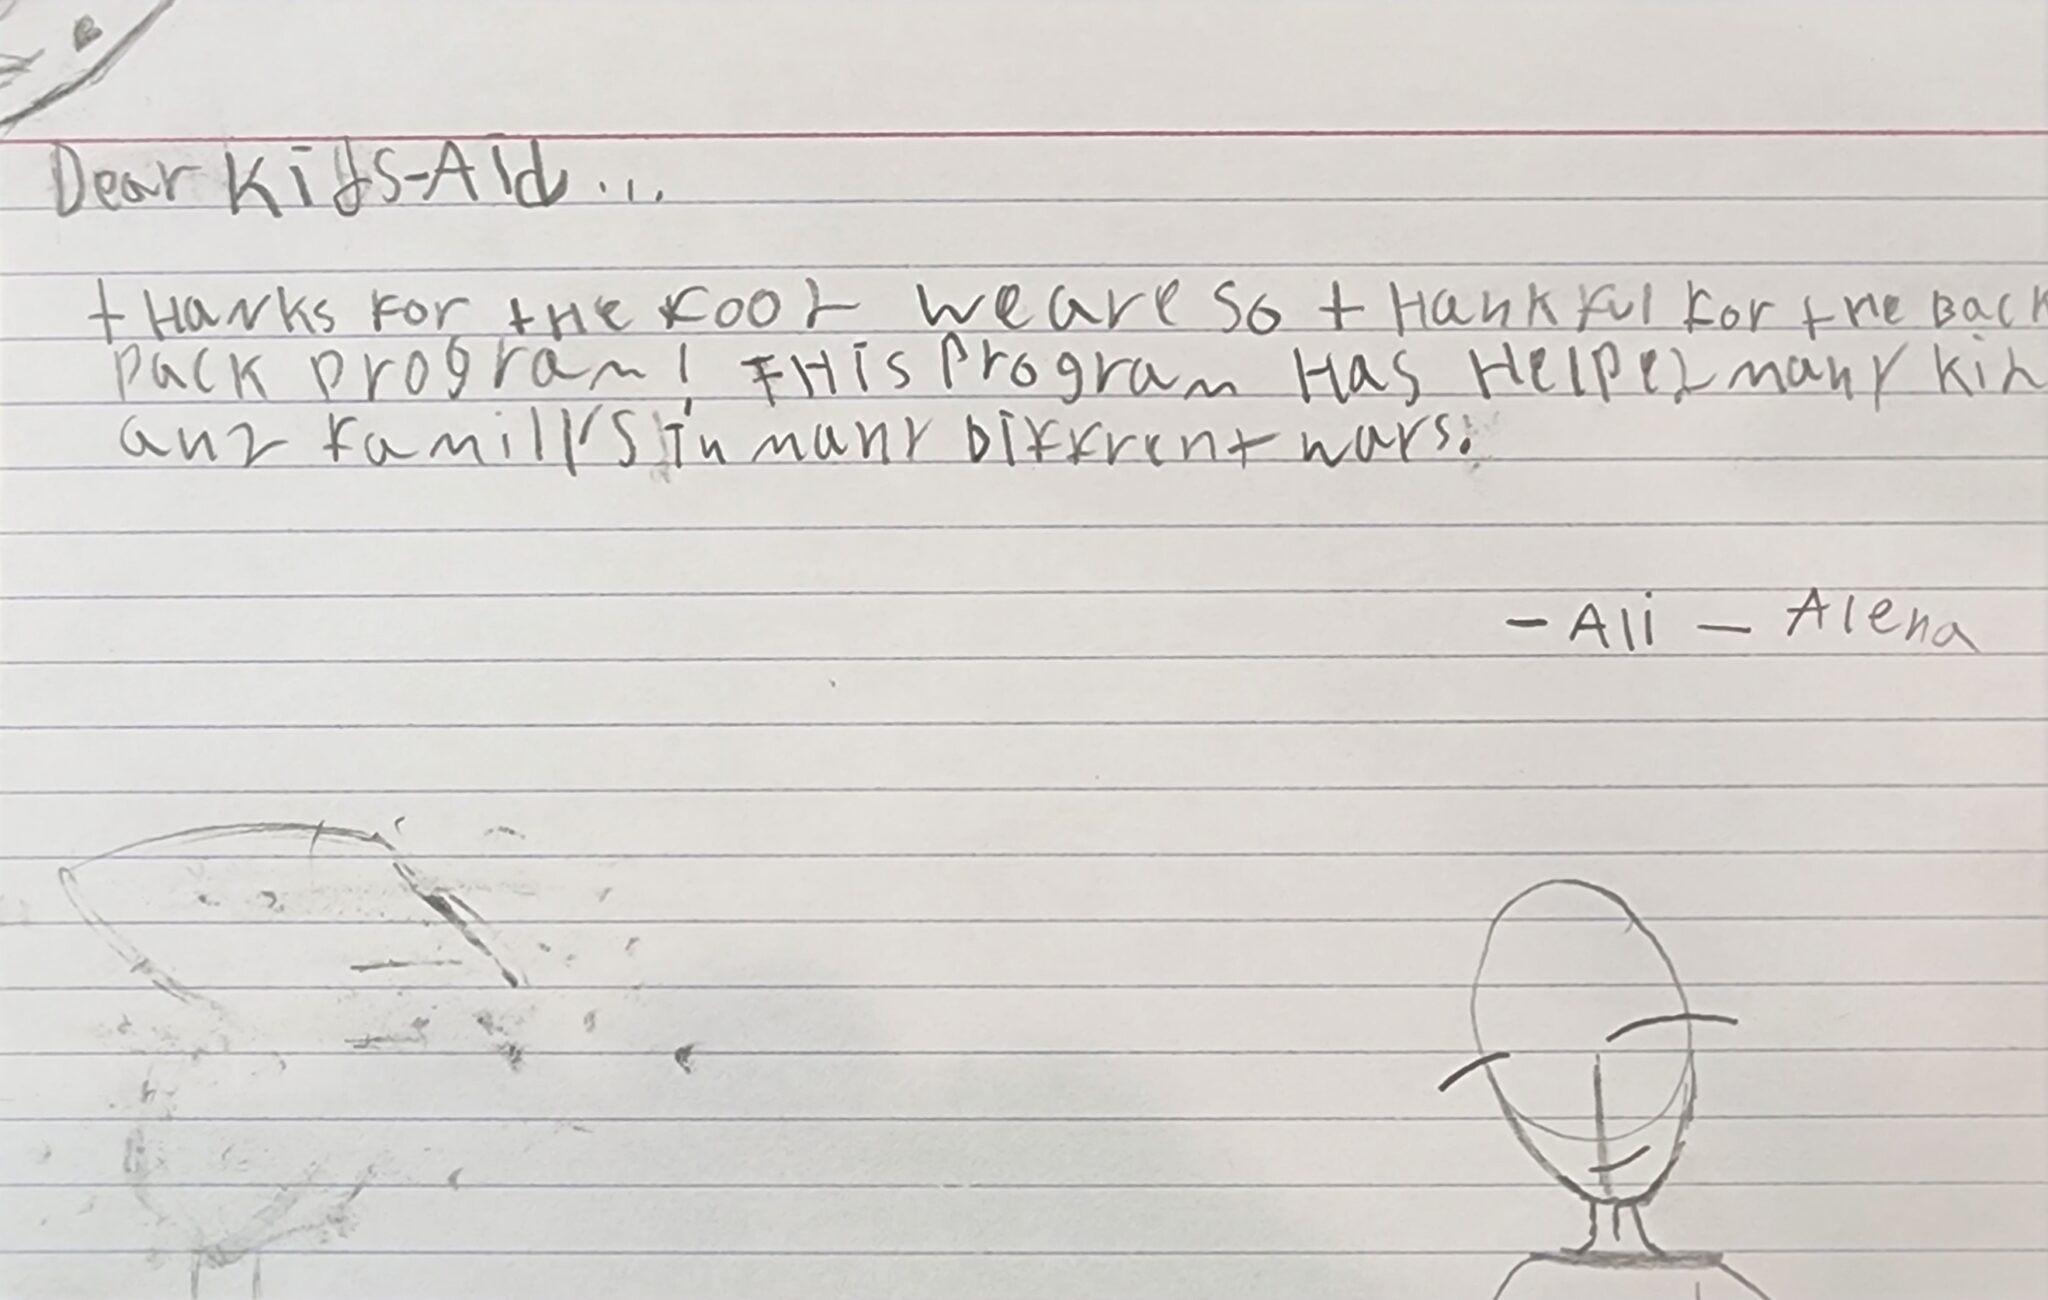 Dear Kids-AId...
tHanks For tHe Food we are so tHankful For tHe Back
pack program! tHis program Has HelPed many kid
and familys in many Diffrent ways.
- Ali - Alena